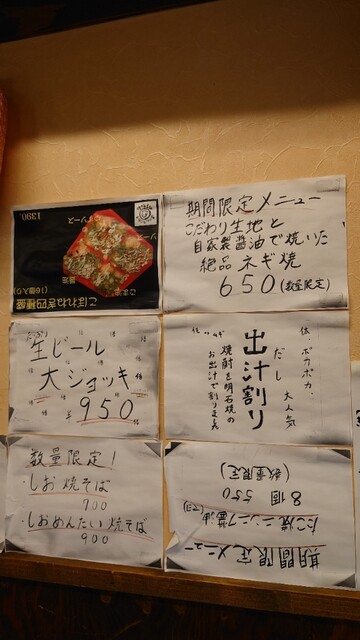 こぼれねぎ四種盛
(16個入り)
1390.
ごま油
醤油
ソース
期間限定メニュー
こだわり生地と
自家製醤油で焼いた
絶品ネギ焼
650(数量限定)
たっぷり
生ビール
大ジョッキ
950
体、ポカポカ、
大人気
だし
出汁割り
焼酎を明石焼の
お出汁で割ります
数量限定!
・しお焼そば
900
・しおめんたい焼そば
900
期間限定メニュー
たこ焼ニンニク醤油
8個 550
(数量限定)